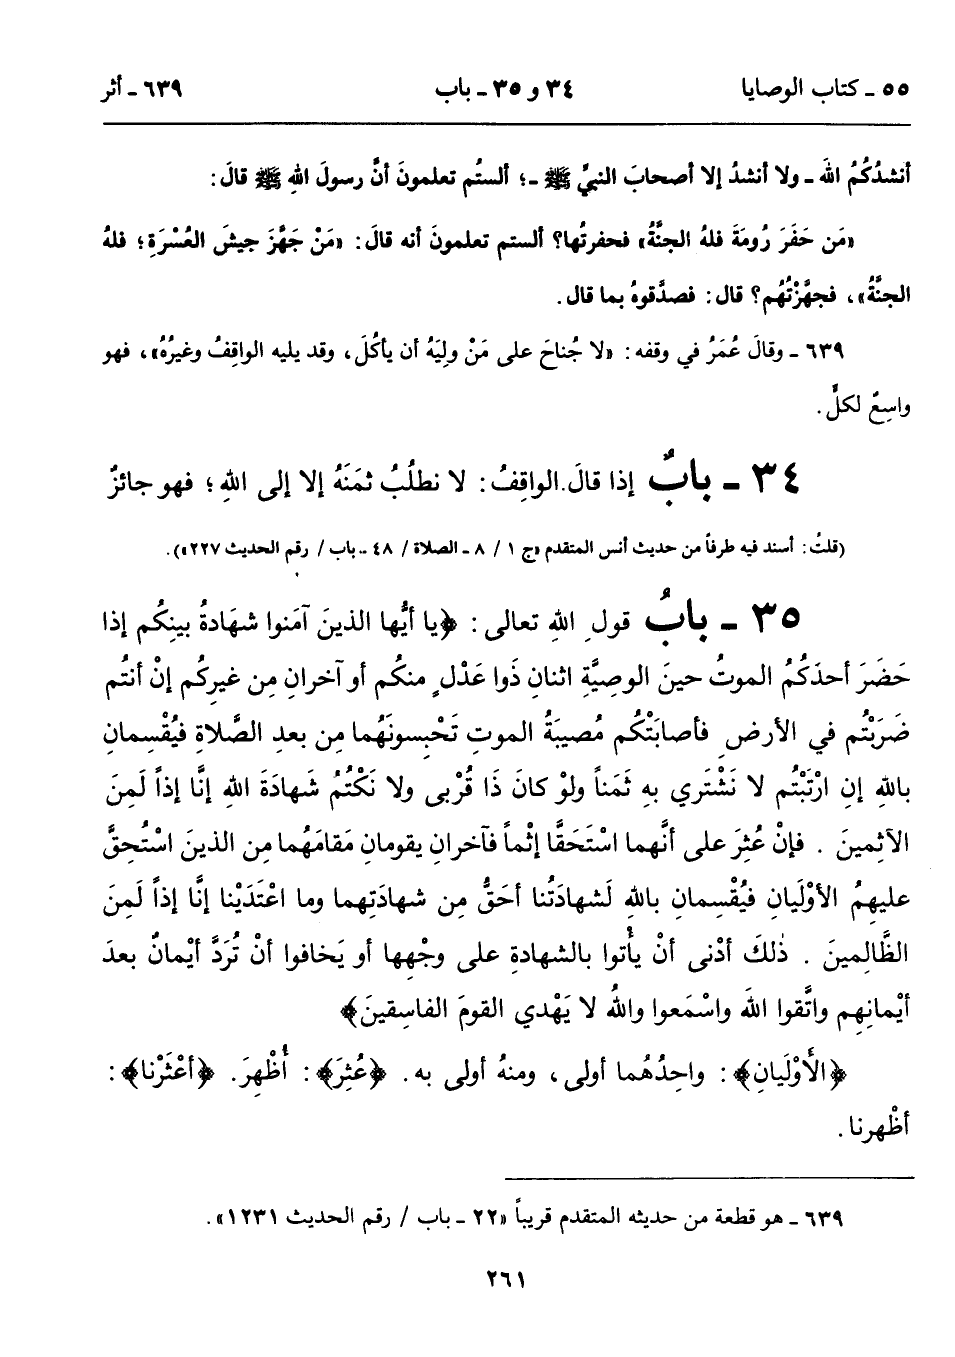 ٥٥ ـ كتاب الوصايا ٣٤ و ٣٥ ـ باب ٦٣٩ ـ أثر
أنشدُكُمُ اللهَ ـ ولا أنشدُ إلا أصحابَ النبيِّ ﷺ ـ؛ ألستُم تعلمونَ أنَّ رسولَ اللهِ ﷺ قالَ:
«مَن حَفَرَ رُومَةَ فلهُ الجنَّةُ» فحفرتُها؟ ألستم تعلمونَ أنه قالَ: «مَنْ جَهَّزَ جيشَ العُسْرَةِ؛ فلهُ
الجنَّةُ»، فجهَّزْتُهُم؟ قال: فصدَّقوهُ بما قال.
٦٣٩ ـ وقالَ عُمَرُ في وقفه: «لا جُناحَ على مَنْ وليَهُ أن يأكُلَ، وقد يليه الواقِفُ وغيرُهُ»، فهو
واسِعٌ لكلٍّ.
٣٤ ـ بابٌ إذا قالَ الواقِفُ: لا نطلُبُ ثمَنَهُ إلا إلى اللهِ؛ فهو جائزٌ
(قلتُ: أسند فيه طرفاً من حديث أنس المتقدم «ج ١ / ٨ ـ الصلاة / ٤٨ ـ باب / رقم الحديث ٢٢٧»).
٣٥ ـ بابُ قولِ اللهِ تعالى: ﴿يا أيُّها الذينَ آمَنوا شهَادةُ بينِكُم إذا
حَضَرَ أحدَكُمُ الموتُ حينَ الوصِيَّةِ اثنانِ ذَوا عَدْلٍ منكُم أو آخرانِ مِن غيرِكُم إنْ أنتُم
ضَرَبْتُم في الأرضِ فأصابَتْكُم مُصيبَةُ الموتِ تَحْبِسونَهُما مِن بعدِ الصَّلاةِ فيُقْسِمانِ
باللهِ إنِ ارْتَبْتُم لا نَشْتَري بهِ ثَمَناً ولوْ كانَ ذَا قُرْبى ولا نَكْتُمُ شَهادَةَ اللهِ إنَّا إذاً لَمِنَ
الآثِمينَ . فإنْ عُثِرَ على أنَّهما اسْتَحَقَّا إثْماً فآخرانِ يقومانِ مَقامَهُما مِن الذينَ اسْتُحِقَّ
عليهِمُ الأوْلَيانِ فيُقْسِمانِ باللهِ لَشهادَتُنا أحَقُّ مِن شهادَتِهما وما اعْتَدَيْنا إنَّا إذاً لَمِنَ
الظَّالِمينَ . ذٰلكَ أدْنى أنْ يأْتوا بالشهادةِ على وجْهِها أو يَخافوا أنْ تُرَدَّ أيْمانٌ بعدَ
أيْمانِهِم واتَّقوا اللهَ واسْمَعوا واللهُ لا يَهْدي القومَ الفاسِقينَ﴾
﴿الأَوْلَيانِ﴾: واحِدُهُما أولى، ومنهُ أولى به. ﴿عُثِرَ﴾: أُظْهِرَ. ﴿أعْثَرْنا﴾:
أظْهرنا.
٦٣٩ ـ هو قطعة من حديثه المتقدم قريباً «٢٢ ـ باب / رقم الحديث ١٢٣١».
٢٦١